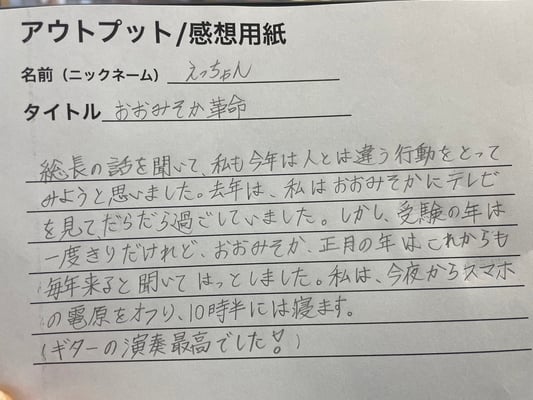 アウトプット/感想用紙
名前（ニックネーム） えっちゃん
タイトル おおみそか革命
総長の話を聞いて、私も今年は人とは違う行動をとって
みようと思いました。去年は、私はおおみそかにテレビ
を見てだらだら過ごしていました。しかし、受験の年は
一度きりだけれど、おおみそか、正月の年は、これからも
毎年来ると聞いてはっとしました。私は、今夜からスマホ
の電原をオフり、10時半には寝ます。
(ギターの演奏最高でした!)